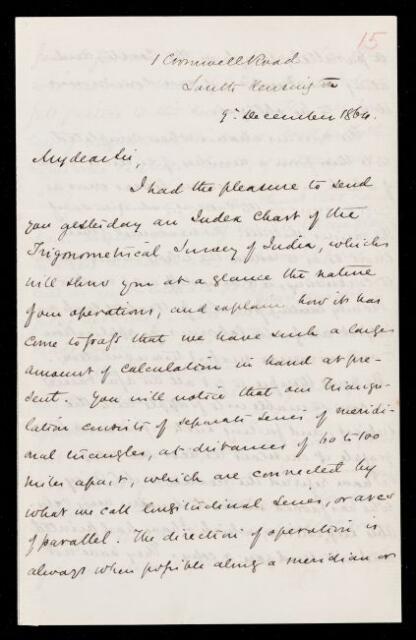 15
1 Cromwell Road
South Kensington
9th December 1864.
My dear Sir,
I had the pleasure to send
you yesterday an Index Chart of the
Trigonometrical Survey of India, which
will show you at a glance the nature
of our operations, and explain how it has
come to pass that we have such a large
amount of calculation in hand at pre-
sent. You will notice that our Triangu-
lation consists of separate series of meridi-
onal triangles, at distances of 60 to 100
miles apart, which are connected by
what we call longitudinal series, or arcs
of parallel. The direction of operation is
always when possible along a meridian or